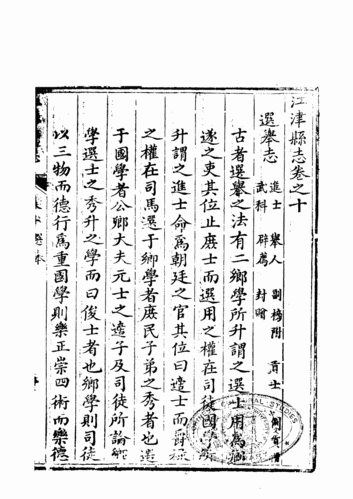 江津縣志卷之十
選舉志
進士 舉人 副榜附 貢士
武科 辟薦 封贈
古者選舉之法有二鄉學所升謂之選士用為鄉
遂之吏其位止庶士而選用之權在司徒國學所
升謂之進士命為朝廷之官其位曰造士而爵祿
之權在司馬選于鄉學者庶民子弟之秀者也造
于國學者公卿大夫元士之適子及司徒所論鄉
學選士之秀升之學而曰俊士者也鄉學則司徒
以三物而德行為重國學則樂正崇四術而樂德